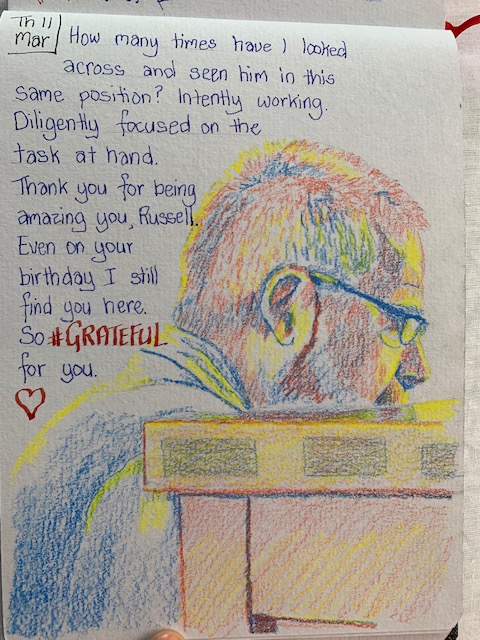 Th 11
Mar
How many times have I looked
across and seen him in this
same position? Intently working.
Diligently focused on the
task at hand.
Thank you for being
amazing you, Russell.
Even on your
birthday I still
find you here.
So #GRATEFUL
for you.